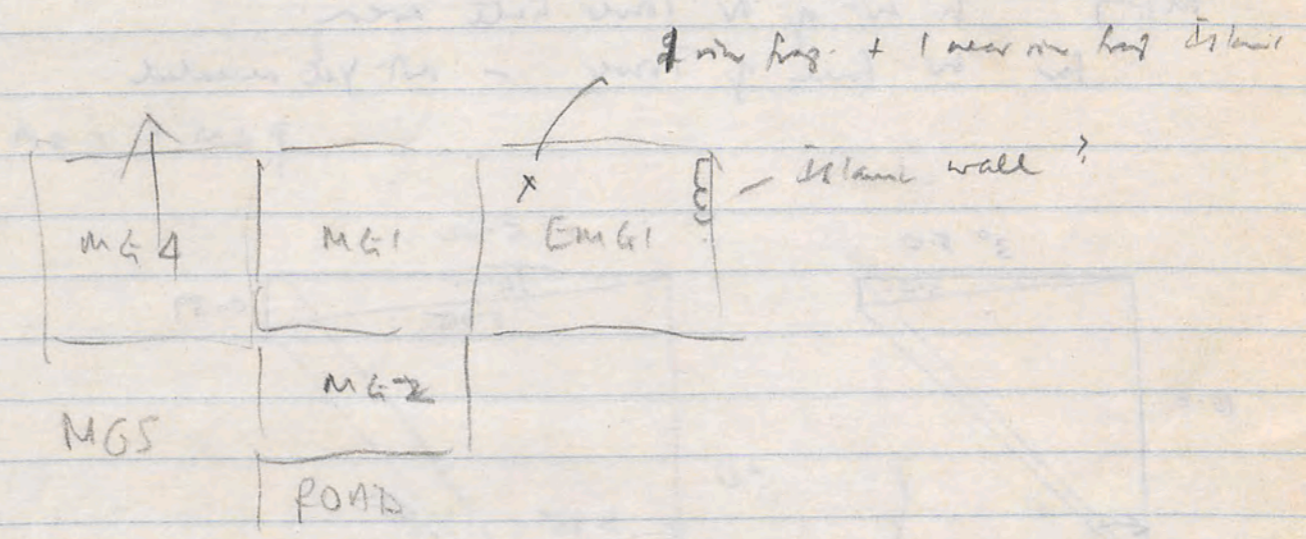 1 rim frag. + 1 near rim frag Islamic
Islamic wall ?
MG4 MG1 EMG1
MG2
MG5
ROAD